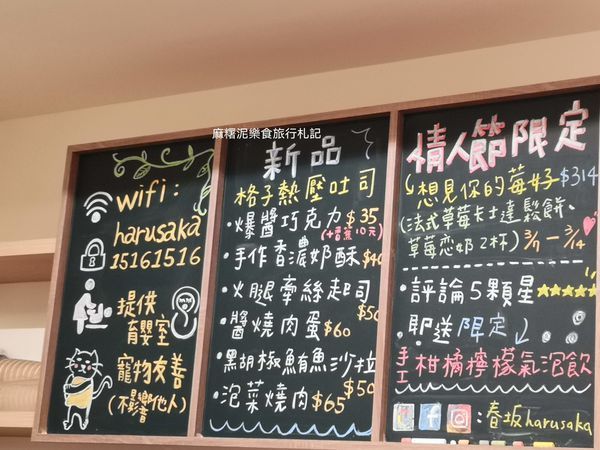 麻糬泥樂食旅行札記
wifi:
harusaka
15161516
提供
育嬰室
寵物友善
(不影響他人)
新品
格子熱壓吐司
·爆醬巧克力$35
(+香蕉10元)
·手作香濃奶酥$40
·火腿牽絲起司$50
·醬燒肉蛋$60
·黑胡椒鮪魚沙拉$50
·泡菜燒肉$65
情人節限定
想見你的莓好$314
(法式草莓卡士達鬆餅、
草莓恋奶2杯)3/7-3/14
·評論5顆星★★★★★
·即送限定
手工柑橘檸檬氣泡飲
:春坂harusaka